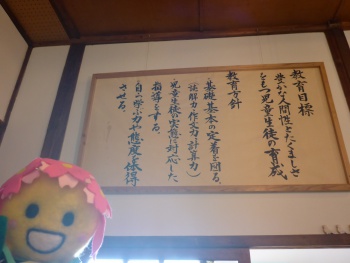 教育目標
豊かな人間性とたくましさ
をもつ児童生徒の育成
教育方針
・基礎・基本の定着を図る。
(読解力・作文力・計算力)
・児童生徒の実態に対応した
指導をする。
・自ら学ぶ力や態度を体得
させる。